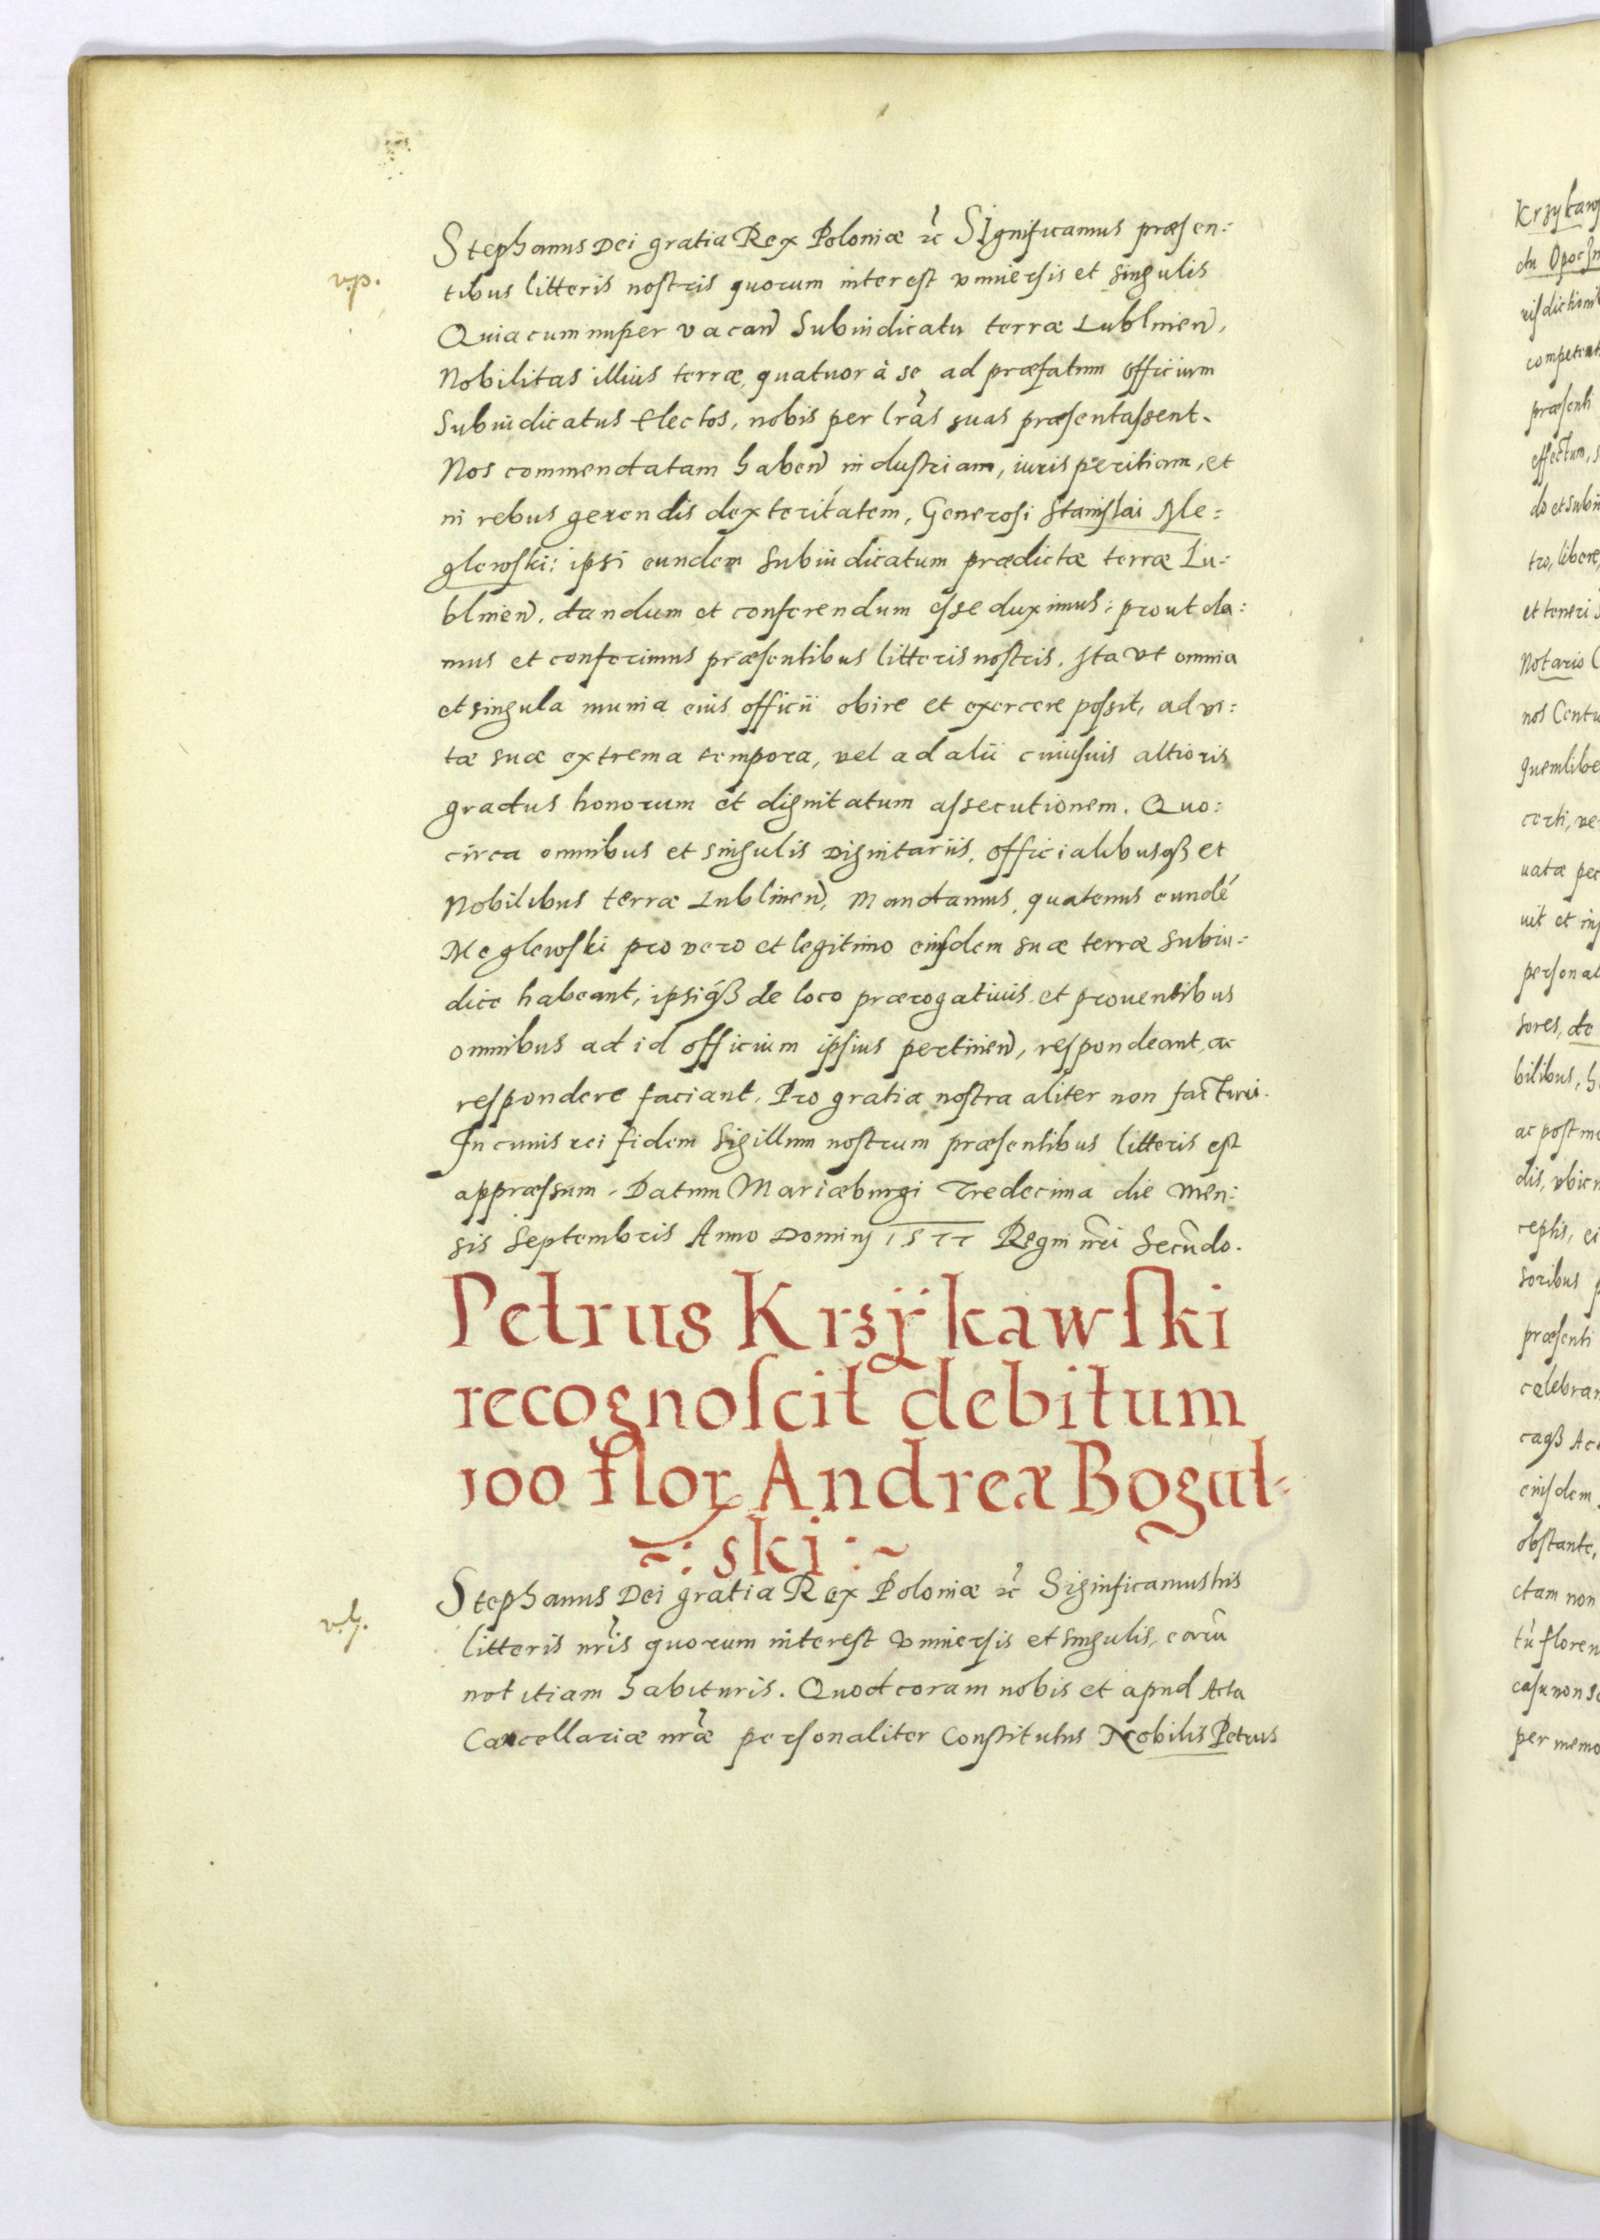 Stephanus Dei gratia Rex Poloniæ ꝛc̃ Significamus præsen:
v.p.
tibus litteris nostris quorum interest vniuersis et singulis
Quia cum nuper vacanᷠ Subiudicatu terræ Lublinenᷠ,
Nobilitas illius terræ, quatuor à se ad præfatum officium
Subiudicatus Electos, nobis per lr̃as suas præsentassent.
Nos commendatam habenᷠ industriam, iuris peritiam, et
in rebus gerendis dexteritatem, Generosi Stanislai Me:
glewski: ipsi eundem Subiudicatum prædictæ terræ Lu:
blinenᷠ. dandum et conferendum esse duximus: prout da:
mus et conferimus præsentibus litteris nostris. Ita vt omnia
et singula munia eius officii obire et exercere possit, ad vi:
tæ suæ extrema tempora, vel ad alii cuiusuis altioris
gradus honorum et dignitatum assecutionem. Quo:
circa omnibus et singulis Dignitariis, officialibusqꝫ et
Nobilibus terræ Lublinenᷠ, Mandamus, quatenus eundẽ
Meglewski pro vero et legitimo eiusdem suæ terræ Subiu:
dice habeant, ipsiqꝫ de loco prærogatiuis et prouentibus
omnibus ad id officium ipsius pertinenᷠ, respondeant, ac
respondere faciant. Pro gratia nostra aliter non facturi.
In cuius rei fidem Sigillum nostrum præsentibus litteris est
appræssum. Datum Mariæburgi Tredecima die Men:
sis Septembris Anno Dominj 1577 Regni nr̃i Secũdo.
Petrus Krzÿkawski
recognoscit debitum
100 floꝝ Andreæ Bogul-
~: ski :~
Stephanus Dei gratia Rex Poloniæ ꝛc̃ Significamus his
v.l.
litteris nr̃is quorum interest Vniuersis et singulis, earũ
notitiam habituris. Quod coram nobis et apud Acta
Cancellariæ nr̃æ personaliter Constitutus Nobilis Petrus
Krzykaws
riisdictioni
præsenti
effectum, s
do et subii
tro, libere,
et teneri
Notario
nos Centu
quemlibe
certi, ve
uatæ per
uit et in
personal
sores, de
bilibus, h
ac post mo
dis, vbicu
ceptis, ei
soribus p
præsenti
celebran
caqꝫ Ac
eiusdem
obstante,
ctam non
tũ floren
casu non
per memo